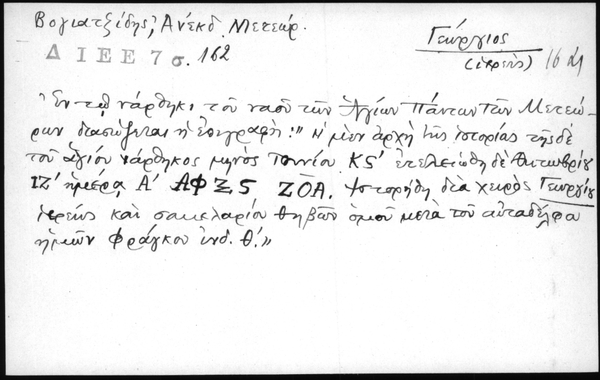 Βογιατζίδης, Ἀνέκδ. Μετεώρ.
Γεώργιος
Δ Ι Ε Ε 7 σ. 162
(ἱερεὺς) 16 αἰ
Ἐν τῷ νάρθηκι τοῦ ναοῦ τῶν Ἁγίων Πάντων τῶν Μετεώ-
ρων διασώζεται ἡ ἐπιγραφή: "Ἡ μὲν ἀρχὴ τῆς ἱστορίας τῆσδε
τοῦ ἁγίου νάρθηκος μηνὸς Ἰουνίου ΚS' ἐτελειώθη δὲ Ὀκτωβρίῳ
ΙΖ' ἡμέρᾳ Α' ΑΦΞS ΖΟΑ. Ἱστορήθη διὰ χειρὸς Γεωργίου
ἱερέως καὶ σακελαρίου Θηβῶν ὁμοῦ μετὰ τοῦ αὐταδέλφου
ἡμῶν Φράγκου ἰνδ. Θ'.»